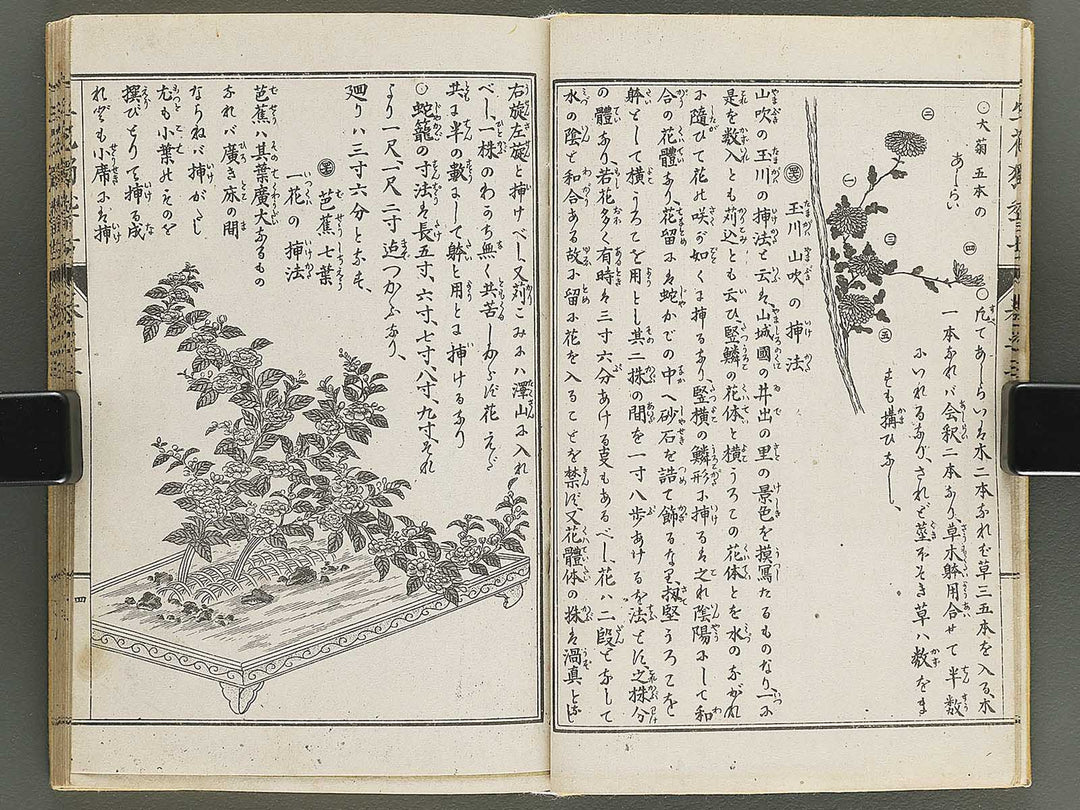 ○大菊五本の
あしらい
一
二
三
四
五
○凡てあしらいハ木二本なれば草三五本を入る、木
一本なれバ会釈二本なり、草木躰用合せて半数
にいれるなり、されど莖ほそき草ハ数をま
すも搆ひなし、
玉川山吹の挿法
山吹の玉川の挿法と云ハ、山城國の井出の里の景色を摸寫たるものなり、一に
是を数入とも苅込とも云ひ、竪鱗の花体と横うろこの花体とを水のながれ
に隨ひて花の咲が如くに挿るなり、竪横の鱗形に挿るハ之れ陰陽にして和
合の花體なり、花留にハ蛇かごの中へ砂石を詰て飾るなり、扨竪うろこを
躰として横うろこを用とし其二株の間を一寸八歩あけるを法とす、之株分
の體なり、若花多く有時ハ三寸六分あける事もあるべし、花ハ二段となして
水の陰と和合ある故に留に花を入ることを禁ず、又花體体の株ハ渦真となし
右旋左旋と挿けべし、又苅こみにハ澤山に入れ
べし、一株のわかち無く共苦しからず花えだ
共に半の數にして躰と用とに挿けるなり
○蛇籠の寸法ハ長五寸、六寸、七寸、八寸、九寸、それ
より一尺、一尺二寸迄つかふなり、
廻りハ三寸六分となす、
芭蕉七葉
一花の挿法
芭蕉ハ其葉廣大なるもの
なれバ廣き床の間
ならねバ挿がたし
尤も小葉のものを
撰びとりて挿る成
れども小席にハ挿
四